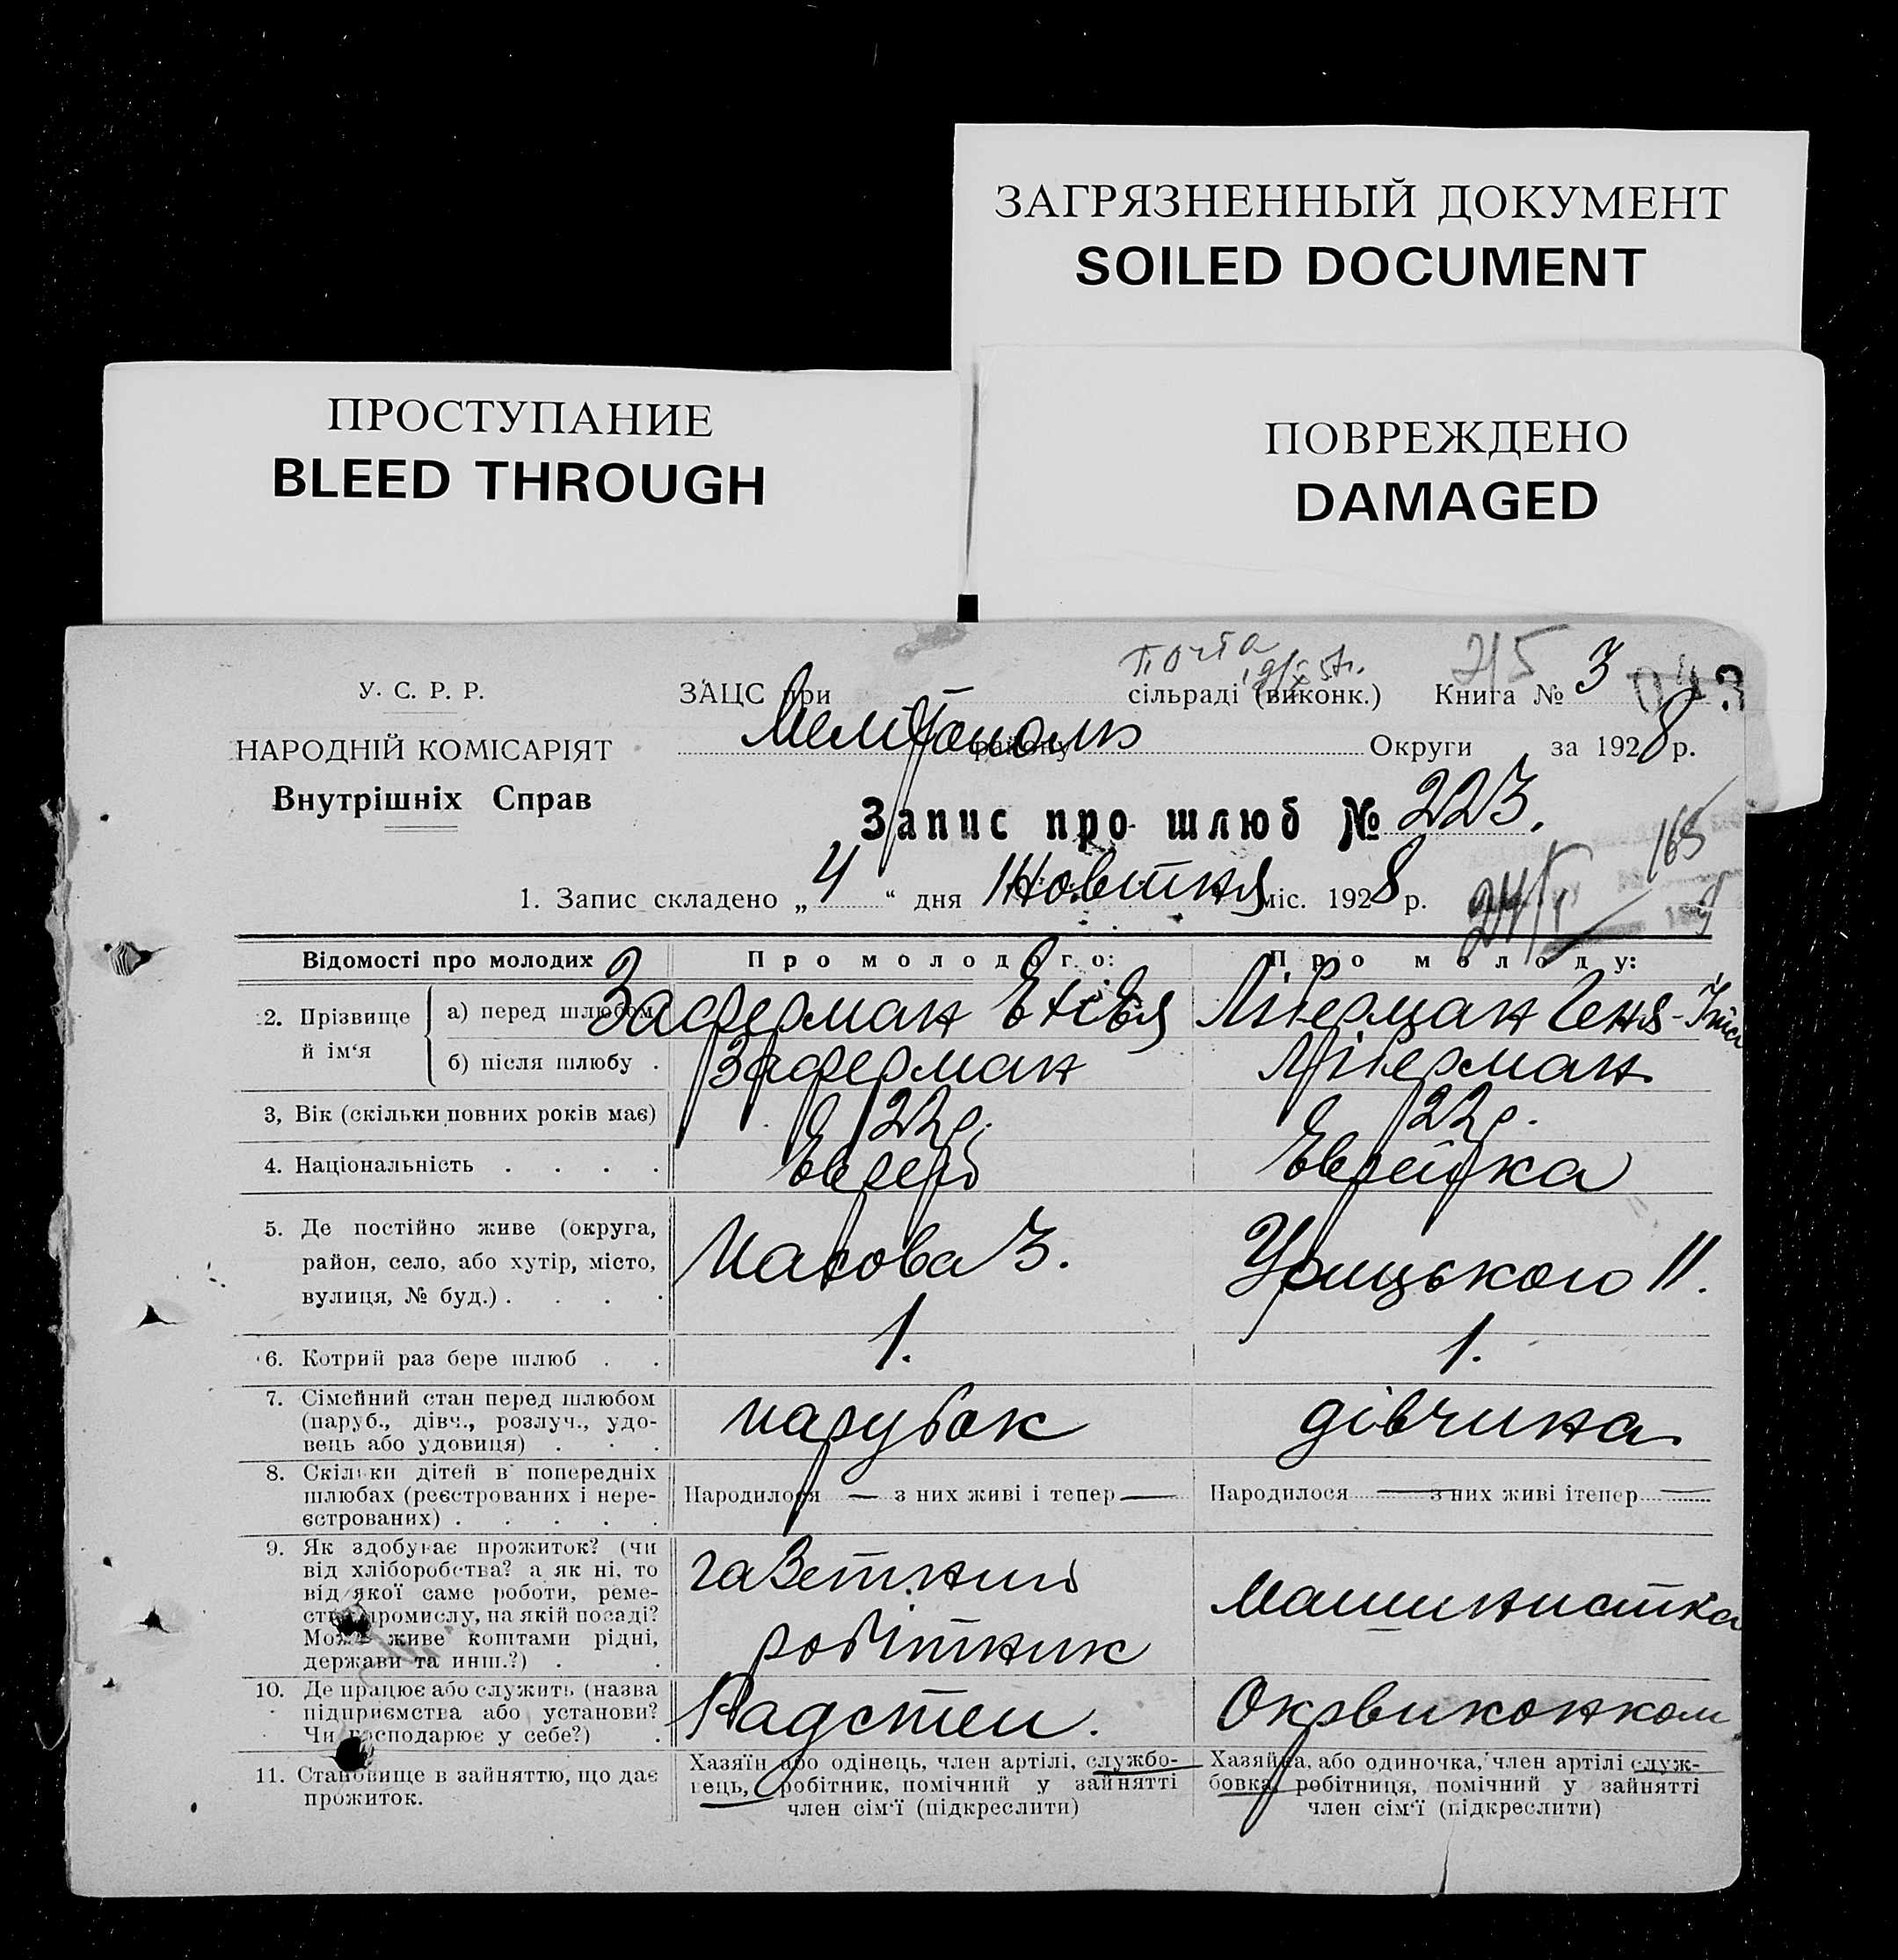 ЗАГРЯЗНЕННЫЙ ДОКУМЕНТ
SOILED DOCUMENT
ПРОСТУПАНИЕ
BLEED THROUGH
ПОВРЕЖДЕНО
DAMAGED
почта
215
У. С. Р. Р.
ЗАЦС при сільраді (виконк.) Книга № 3
НАРОДНІЙ КОМІСАРІЯТ
Мелітополь району Округи за 1928 р.
Внутрішніх Справ
Запис про шлюб № 223.
165
1. Запис складено „4“ дня Жовтня міс. 1928 р.
Відомості про молодих
Про молодого:
Про молоду:
2. Прізвище й ім‘я
а) перед шлюбом
Заферман
Ліберман Геня-
б) після шлюбу .
Заферман
Ліберман
3, Вік (скільки повних років має)
22 р.
22 р.
4. Національність . . . .
Еврей
Еврейка
5. Де постійно живе (округа,
район, село, або хутір, місто,
вулиця, № буд.) . . . .
3.
Урицького 11.
6. Котрий раз бере шлюб . .
1.
1.
7. Сімейний стан перед шлюбом
(паруб., дівч., розлуч., удо-
вець або удовиця) . . .
парубок
дівчина
8. Скільки дітей в попередніх
шлюбах (реєстрованих і нере-
єстрованих) . . . . .
Народилося — з них живі і тепер —
Народилося — з них живі ітепер —
9. Як здобуває прожиток? (чи
від хліборобства? а як ні, то
від якої саме роботи, реме-
ства промислу, на якій посаді?
Може живе коштами рідні,
держави та инш.?) . .
газетний
робітник
Машинистка
10. Де працює або служить (назва
підприємства або установи?
Чи господарює у себе?) .
Радстеп.
Окрвиконком
11. Становище в зайняттю, що дає
прожиток.
Хазяїн або одінець, член артілі, службо-
вець, робітник, помічний у зайнятті
член сім‘ї (підкреслити)
Хазяйка, або одиночка, член артілі служ-
бовка, робітниця, помічний у зайнятті
член сім‘ї (підкреслити)